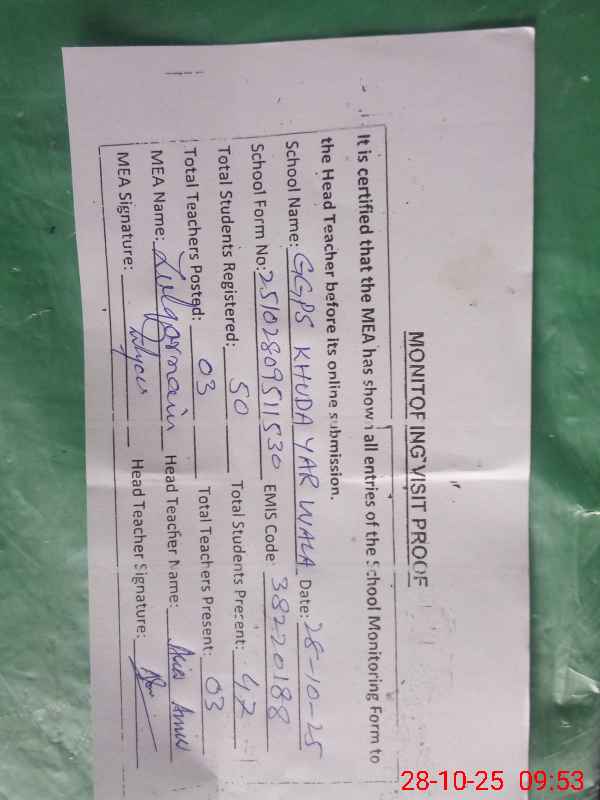 MONITOFING VISIT PROOF
It is certified that the MEA has shown all entries of the School Monitoring Form to
the Head Teacher before its online submission.
School Name: GGPS KHUDA YAR WALA Date: 28-10-25
School Form No: 25102809511530 EMIS Code: 38220188
Total Students Registered: 50 Total Students Present: 47
Total Teachers Posted: 03 Total Teachers Present: 03
MEA Name: Zulqarnain Head Teacher Name:
MEA Signature: Head Teacher Signature:
28-10-25 09:53